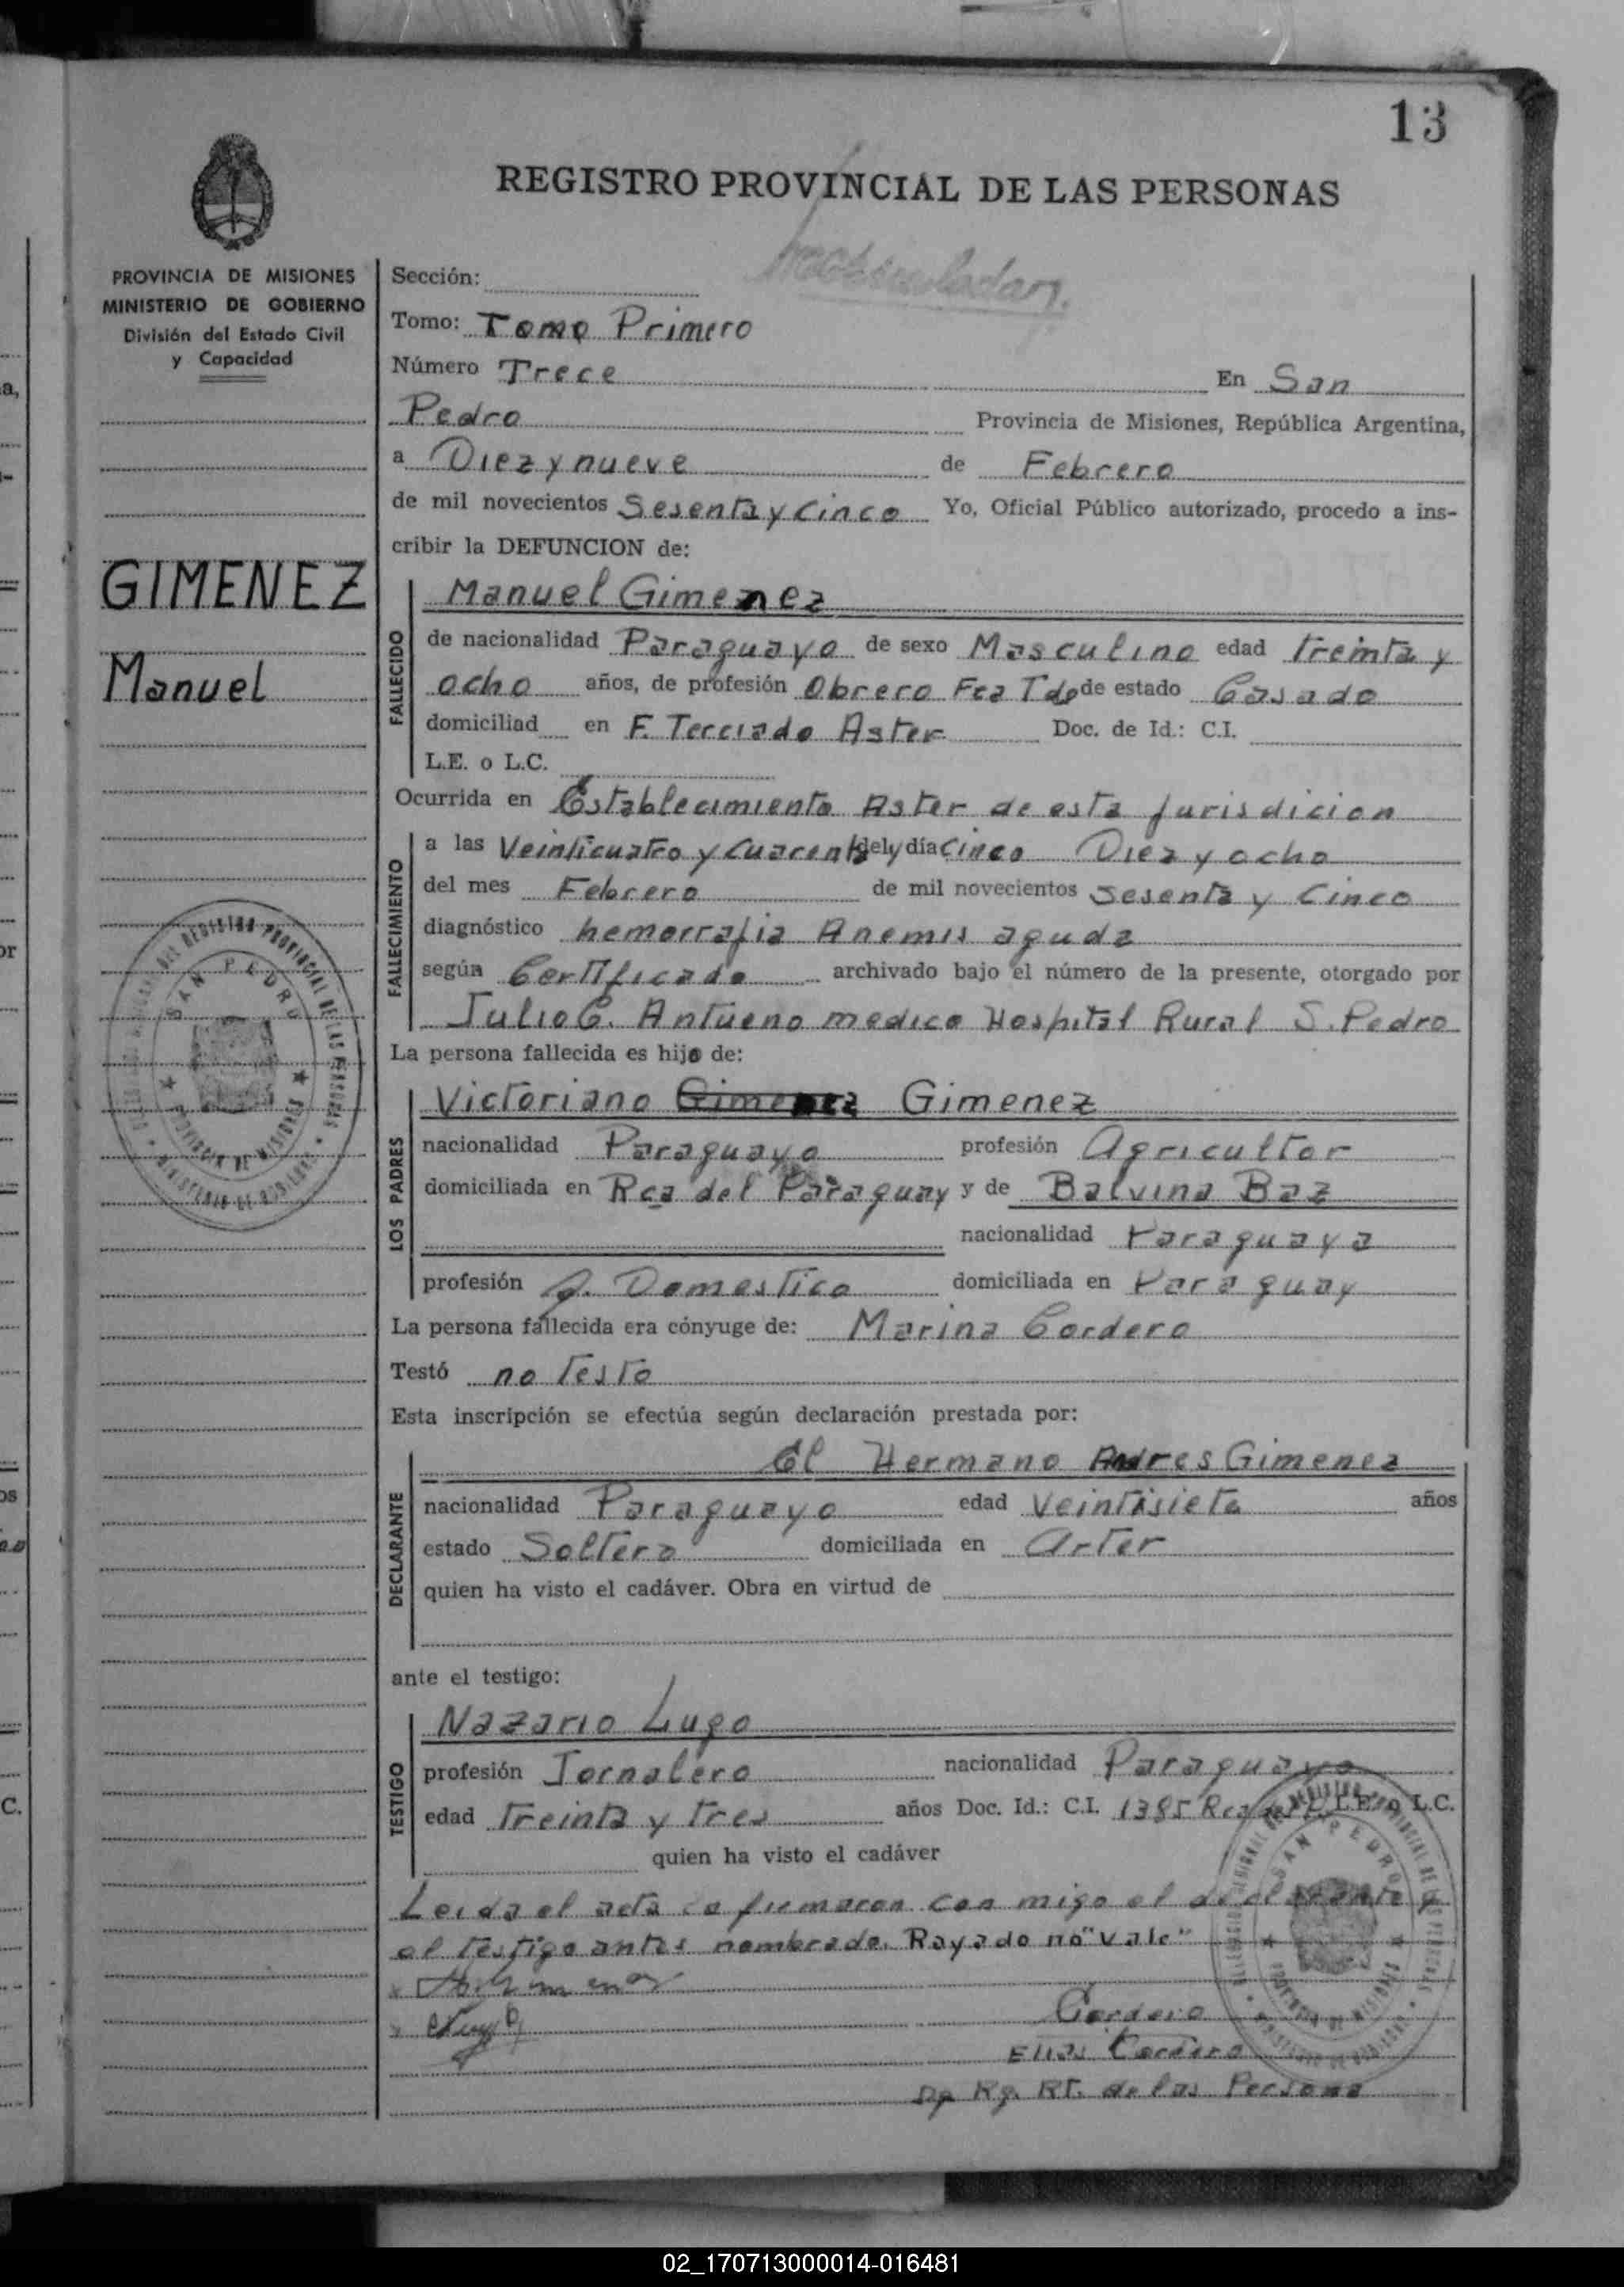 13
REGISTRO PROVINCIAL DE LAS PERSONAS
PROVINCIA DE MISIONES
MINISTERIO DE GOBIERNO
División del Estado Civil
y Capacidad
GIMENEZ
Manuel
Sección:
Tomo: Tomo Primero
Número Trece En San
Pedro Provincia de Misiones, República Argentina,
a Diez y nueve de Febrero
de mil novecientos Sesenta y Cinco Yo, Oficial Público autorizado, procedo a ins-
cribir la DEFUNCION de:
FALLECIDO
Manuel Gimenez
de nacionalidad Paraguayo de sexo Masculino edad treinta y
ocho años, de profesión Obrero Fca Tdo de estado Casado
domiciliad en F. Terciado Aster Doc. de Id.: C.I.
L.E. o L.C.
Ocurrida en Establecimiento Aster de esta jurisdicion
FALLECIMIENTO
a las Veinticuatro y cuarenta y del día Cinco Diez y ocho
del mes Febrero de mil novecientos Sesenta y Cinco
diagnóstico hemorrafia Anemis aguda
según Certificado archivado bajo el número de la presente, otorgado por
Julio C. Antueno medico Hospital Rural S. Pedro
La persona fallecida es hijo de:
LOS PADRES
Victoriano Gimenez Gimenez
nacionalidad Paraguayo profesión Agricultor
domiciliada en Rca del Paraguay y de Balvina Baz
nacionalidad Paraguaya
profesión Q. Domestico domiciliada en Paraguay
La persona fallecida era cónyuge de: Marina Cordero
Testó no Testo
Esta inscripción se efectúa según declaración prestada por:
DECLARANTE
El Hermano Andres Gimenez
nacionalidad Paraguayo edad Veintisiete años
estado Soltero domiciliada en Aster
quien ha visto el cadáver. Obra en virtud de
ante el testigo:
TESTIGO
Nazario Lugo
profesión Jornalero nacionalidad Paraguayo
edad treinta y tres años Doc. Id.: C.I. 1385 L.E. o L.C.
quien ha visto el cadáver
Leida el acta la firmaron con migo el declarante y
el testigo antes nombrado. Rayado no "vale"
Cordero
Elias Cordero
Rg. Rt. de las Persona
SAN PEDRO
PROVINCIA DE MISIONES
SAN PEDRO
PROVINCIA DE MISIONES
02_170713000014-016481